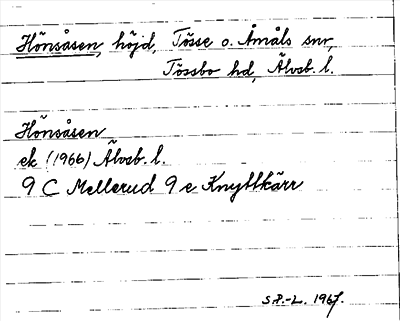 Hönsåsen, höjd, Tösse o. Åmåls snr,
Tössbo hd, Älvsb. l.
Hönsåsen
ek (1966) Älvsb. l.
9 C Mellerud 9 e Knyttkärr
S.P.-L. 1967.